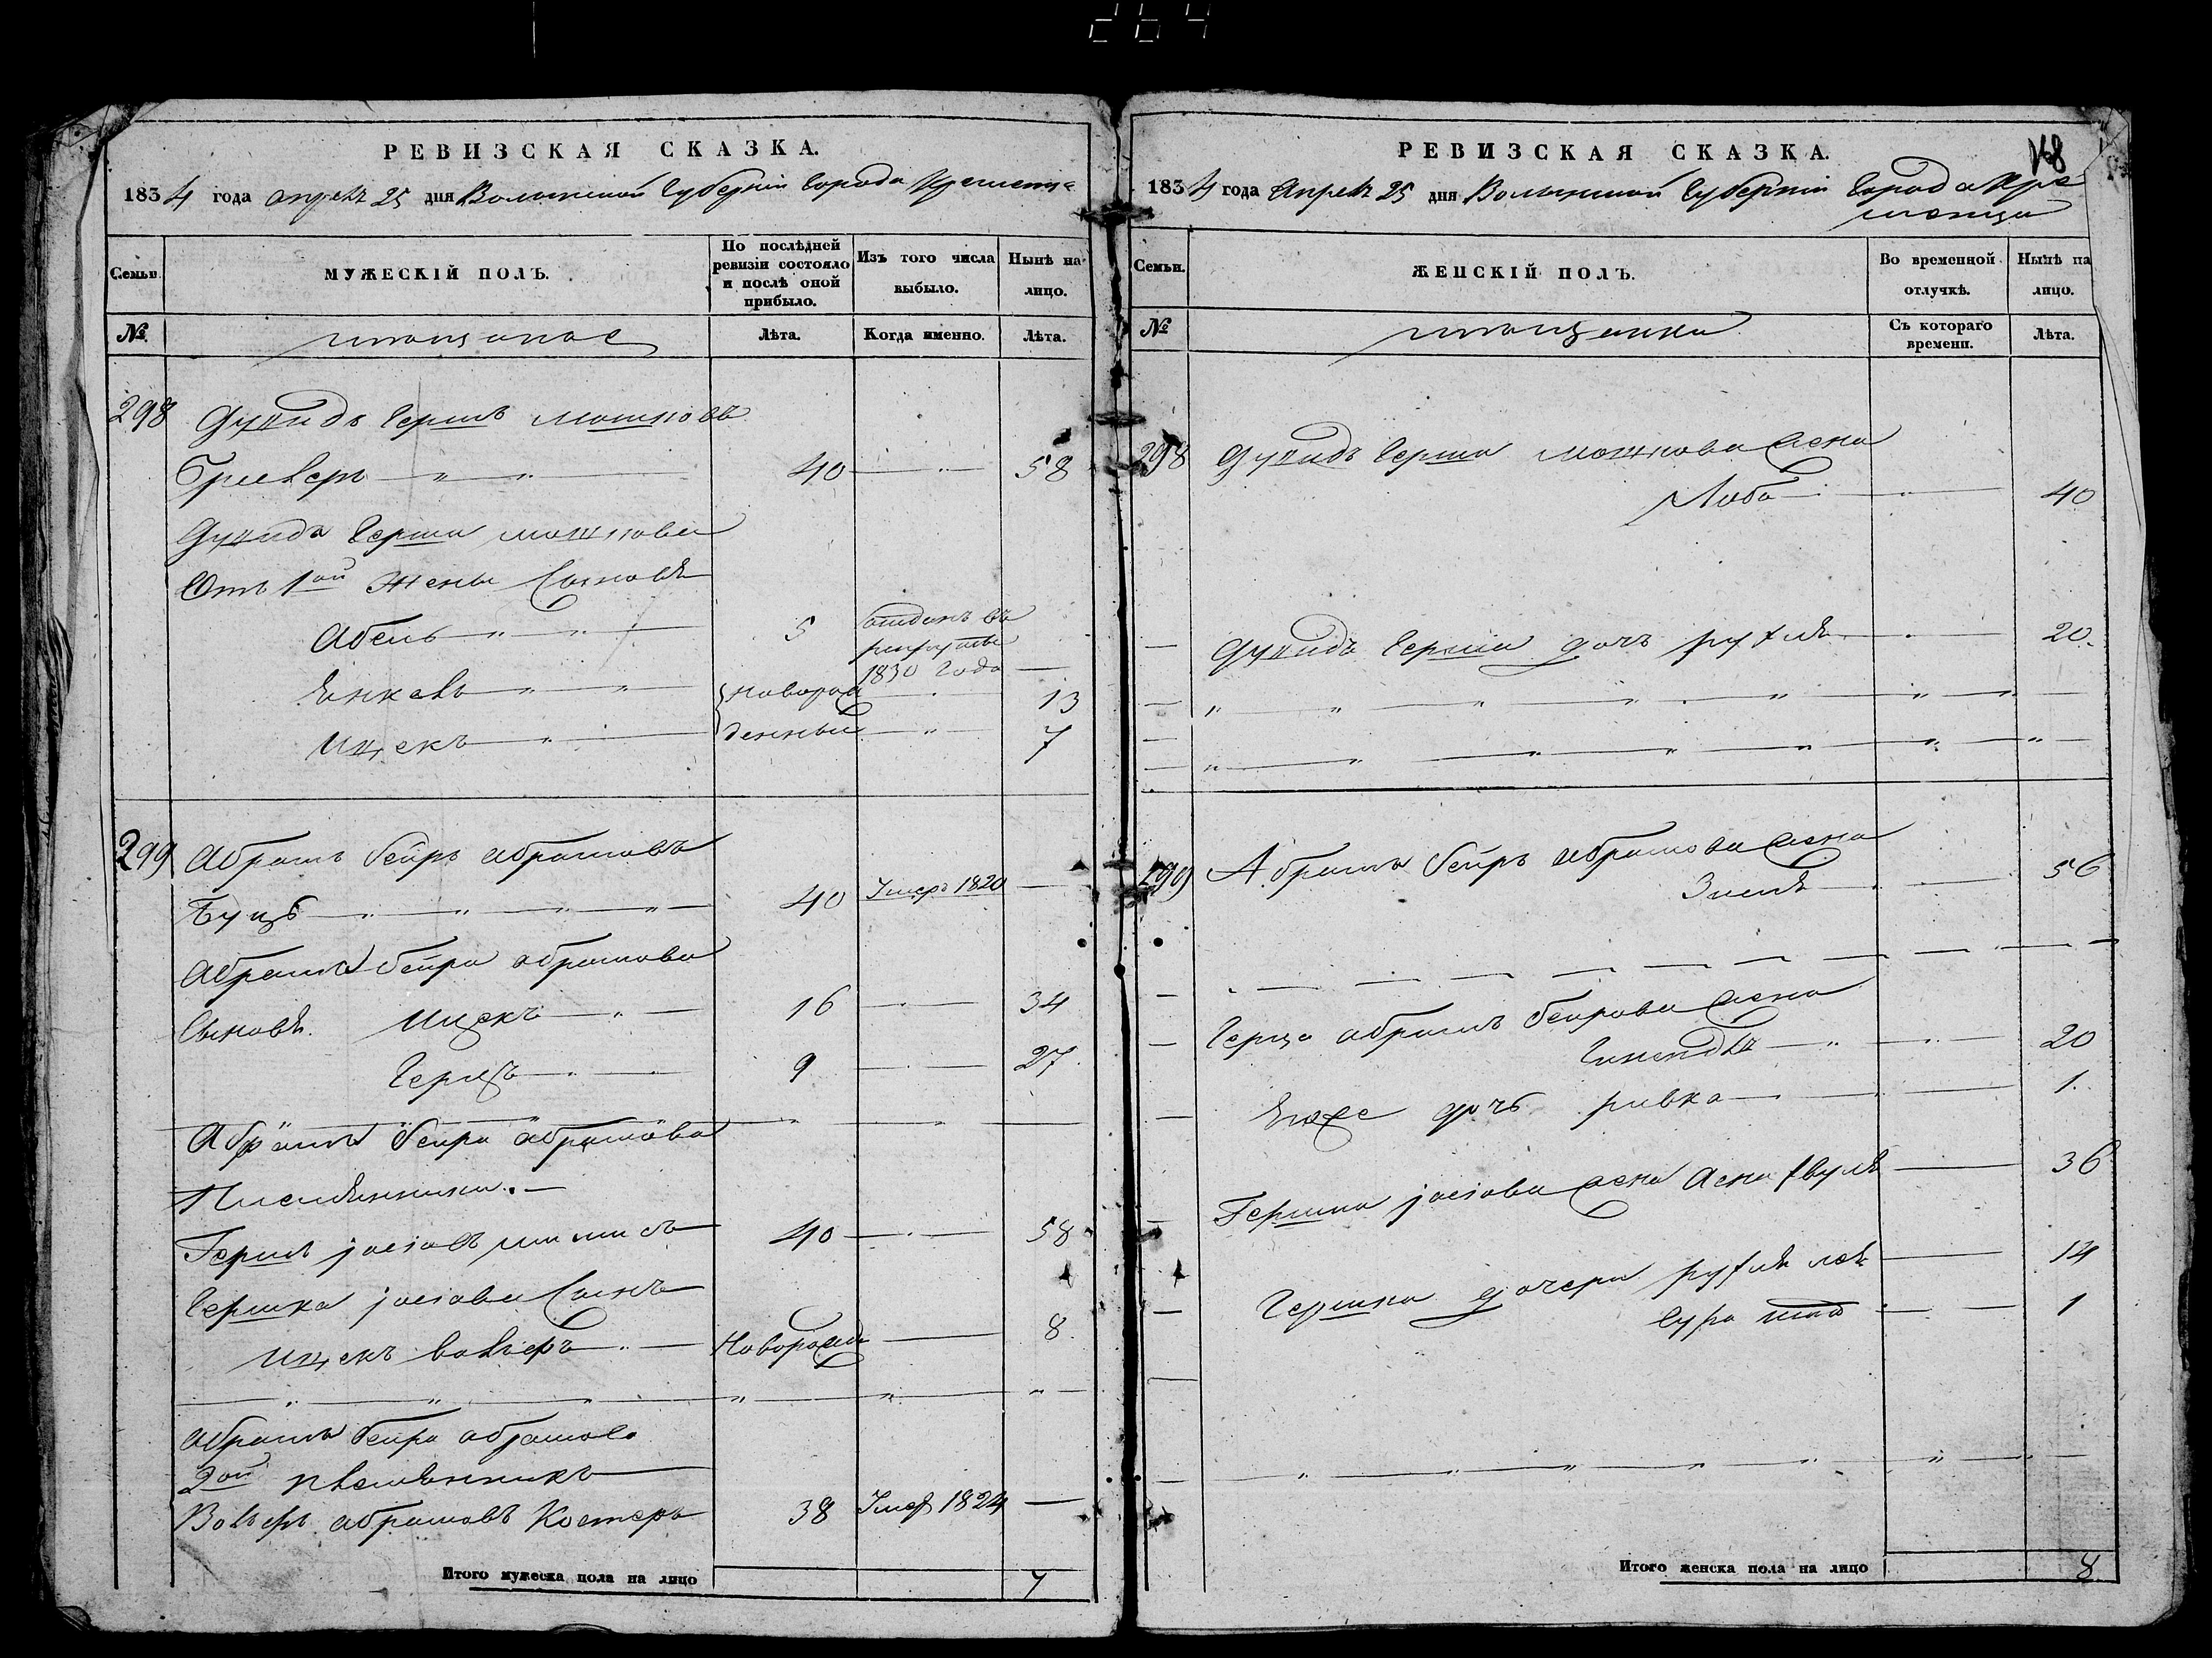 264
РЕВИЗСКАЯ СКАЗКА.
1834 года апреля 25 дня Волынской Губерніи Города Кременца
Семьи.
МУЖЕСКІЙ ПОЛЪ.
По послѣдней ревизіи состояло и послѣ оной прибыло.
Изъ того числа выбыло.
Нынѣ на лицо.
№
Лѣта.
Когда именно.
Лѣта.
298 Дувидъ Гершъ Мошковъ
40 58
Дувида Герша Мошкова
Отъ 1ой жены Сыновя
Абель 5 отданъ въ рекруты 1830 года
Янкель новорож 13
Ицекъ денныи 7
299 Абрамъ Беиръ Абрамовъ
Буцъ 40 Умеръ 1820
Абрама Беира Абрамова
Сыновя. Ицекъ 16 34
Герцъ 9 27
Абрама Беира Абрамова
Племянники.
Гершъ 40 58
Гершка Сынъ
Ицекъ Новорожд 8
Абрама Беира Абрамова
2ой племянникъ
Абрамовъ Костеръ 38 Умеръ 1824
Итого мужеска пола на лицо 7
168
РЕВИЗСКАЯ СКАЗКА.
1834 года Апреля 25 дня Волынской Губерніи Города Кре
менца
Семьи.
ЖЕНСКІЙ ПОЛЪ.
Во временной отлучкѣ.
Нынѣ на лицо.
№
Съ котораго времени.
Лѣта.
298 Дувидъ Герша Мошкова жена
Люба 40
Дувидъ Герша дочь рухля 20
299 Абрама Беиръ Абрамова жена
56
Герца Абрамъ Беирова жена
20
Егоже дочь ривка 1
Гершка жена 36
Гершка дочери рухля лея 14
Сура 1
Итого женска пола на лицо 8